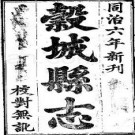 同治六年新刊
穀城縣志
校對無訛